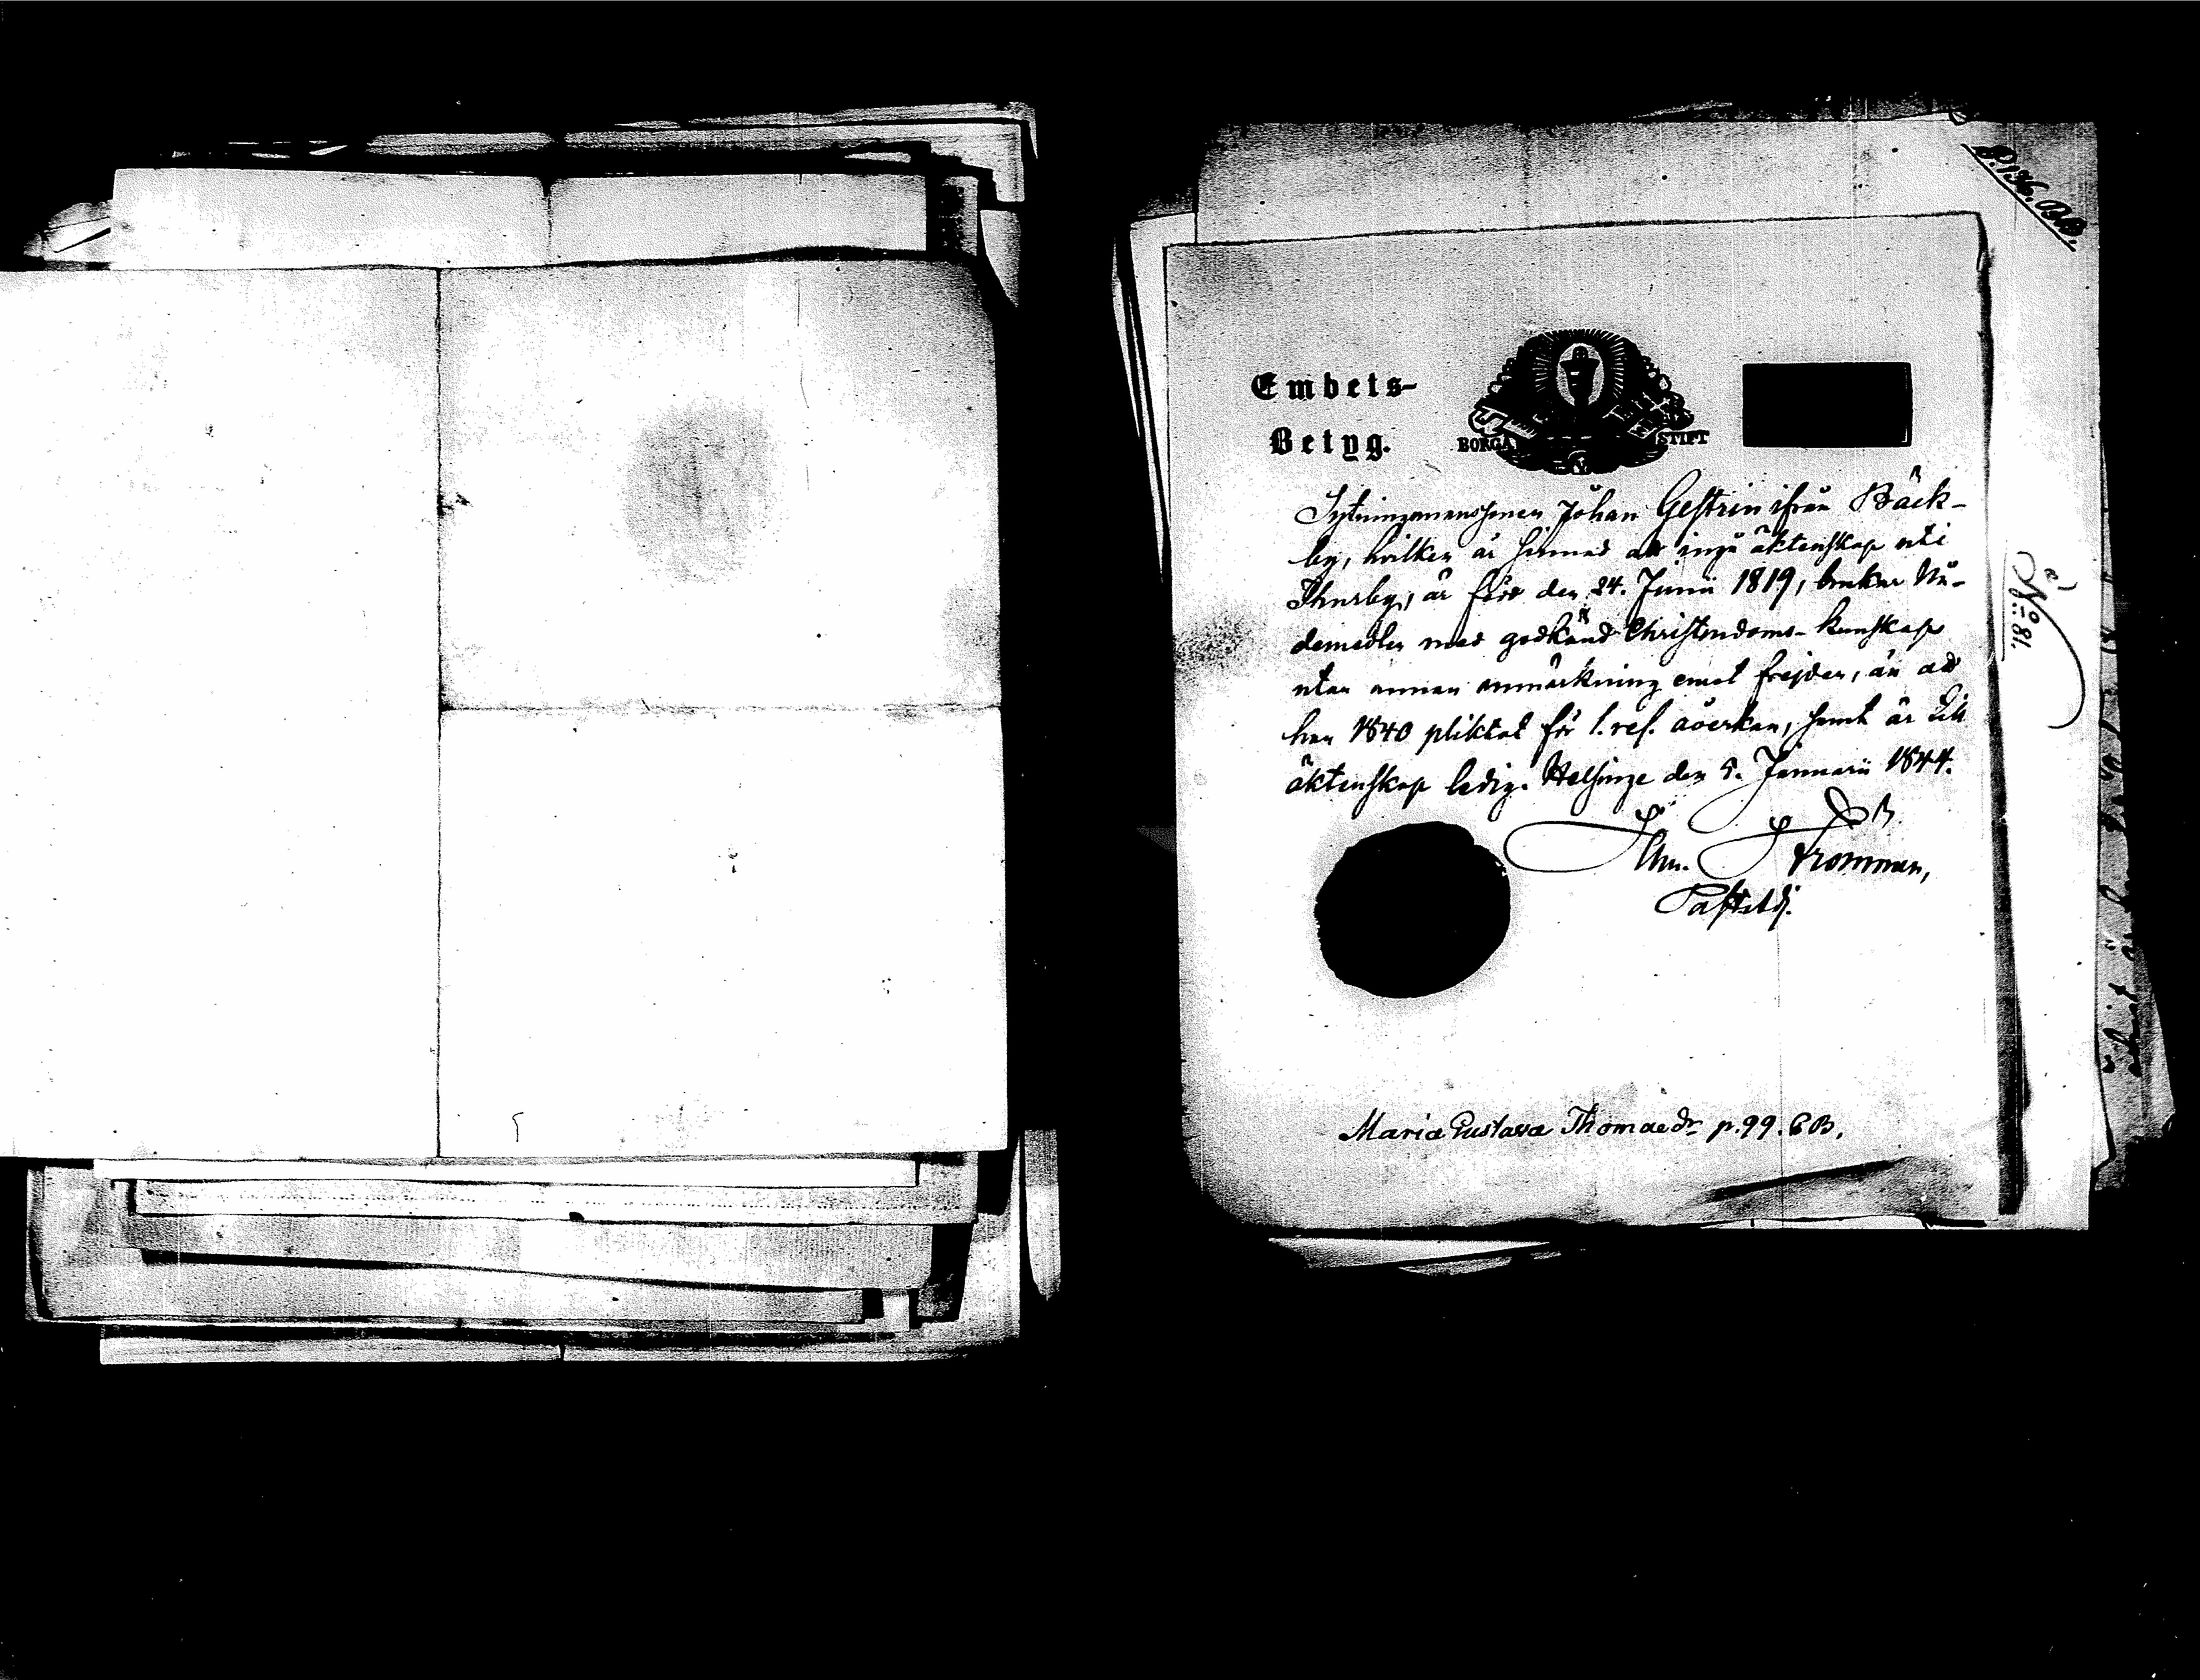 Embets-
Betyg.
BORGÅ STIFT
Sytningsmanssonen Johan Gestrin ifrån Bäck-
by, hvilken är sinnad att ingå äktenskap uti
Thusby, är född den 24. Junii 1819, brukar Nå-
demedlen med godkänd Christendoms-kunskap
utan annan anmärkning emot frejden, än att
han 1840 pliktat för l. ref. åverkan, samt är till
äktenskap ledig. Helsinge den 5. Januarii 1844.
Fromman,
Maria Gustava Thomaedr p. 99. CB.
No 81.